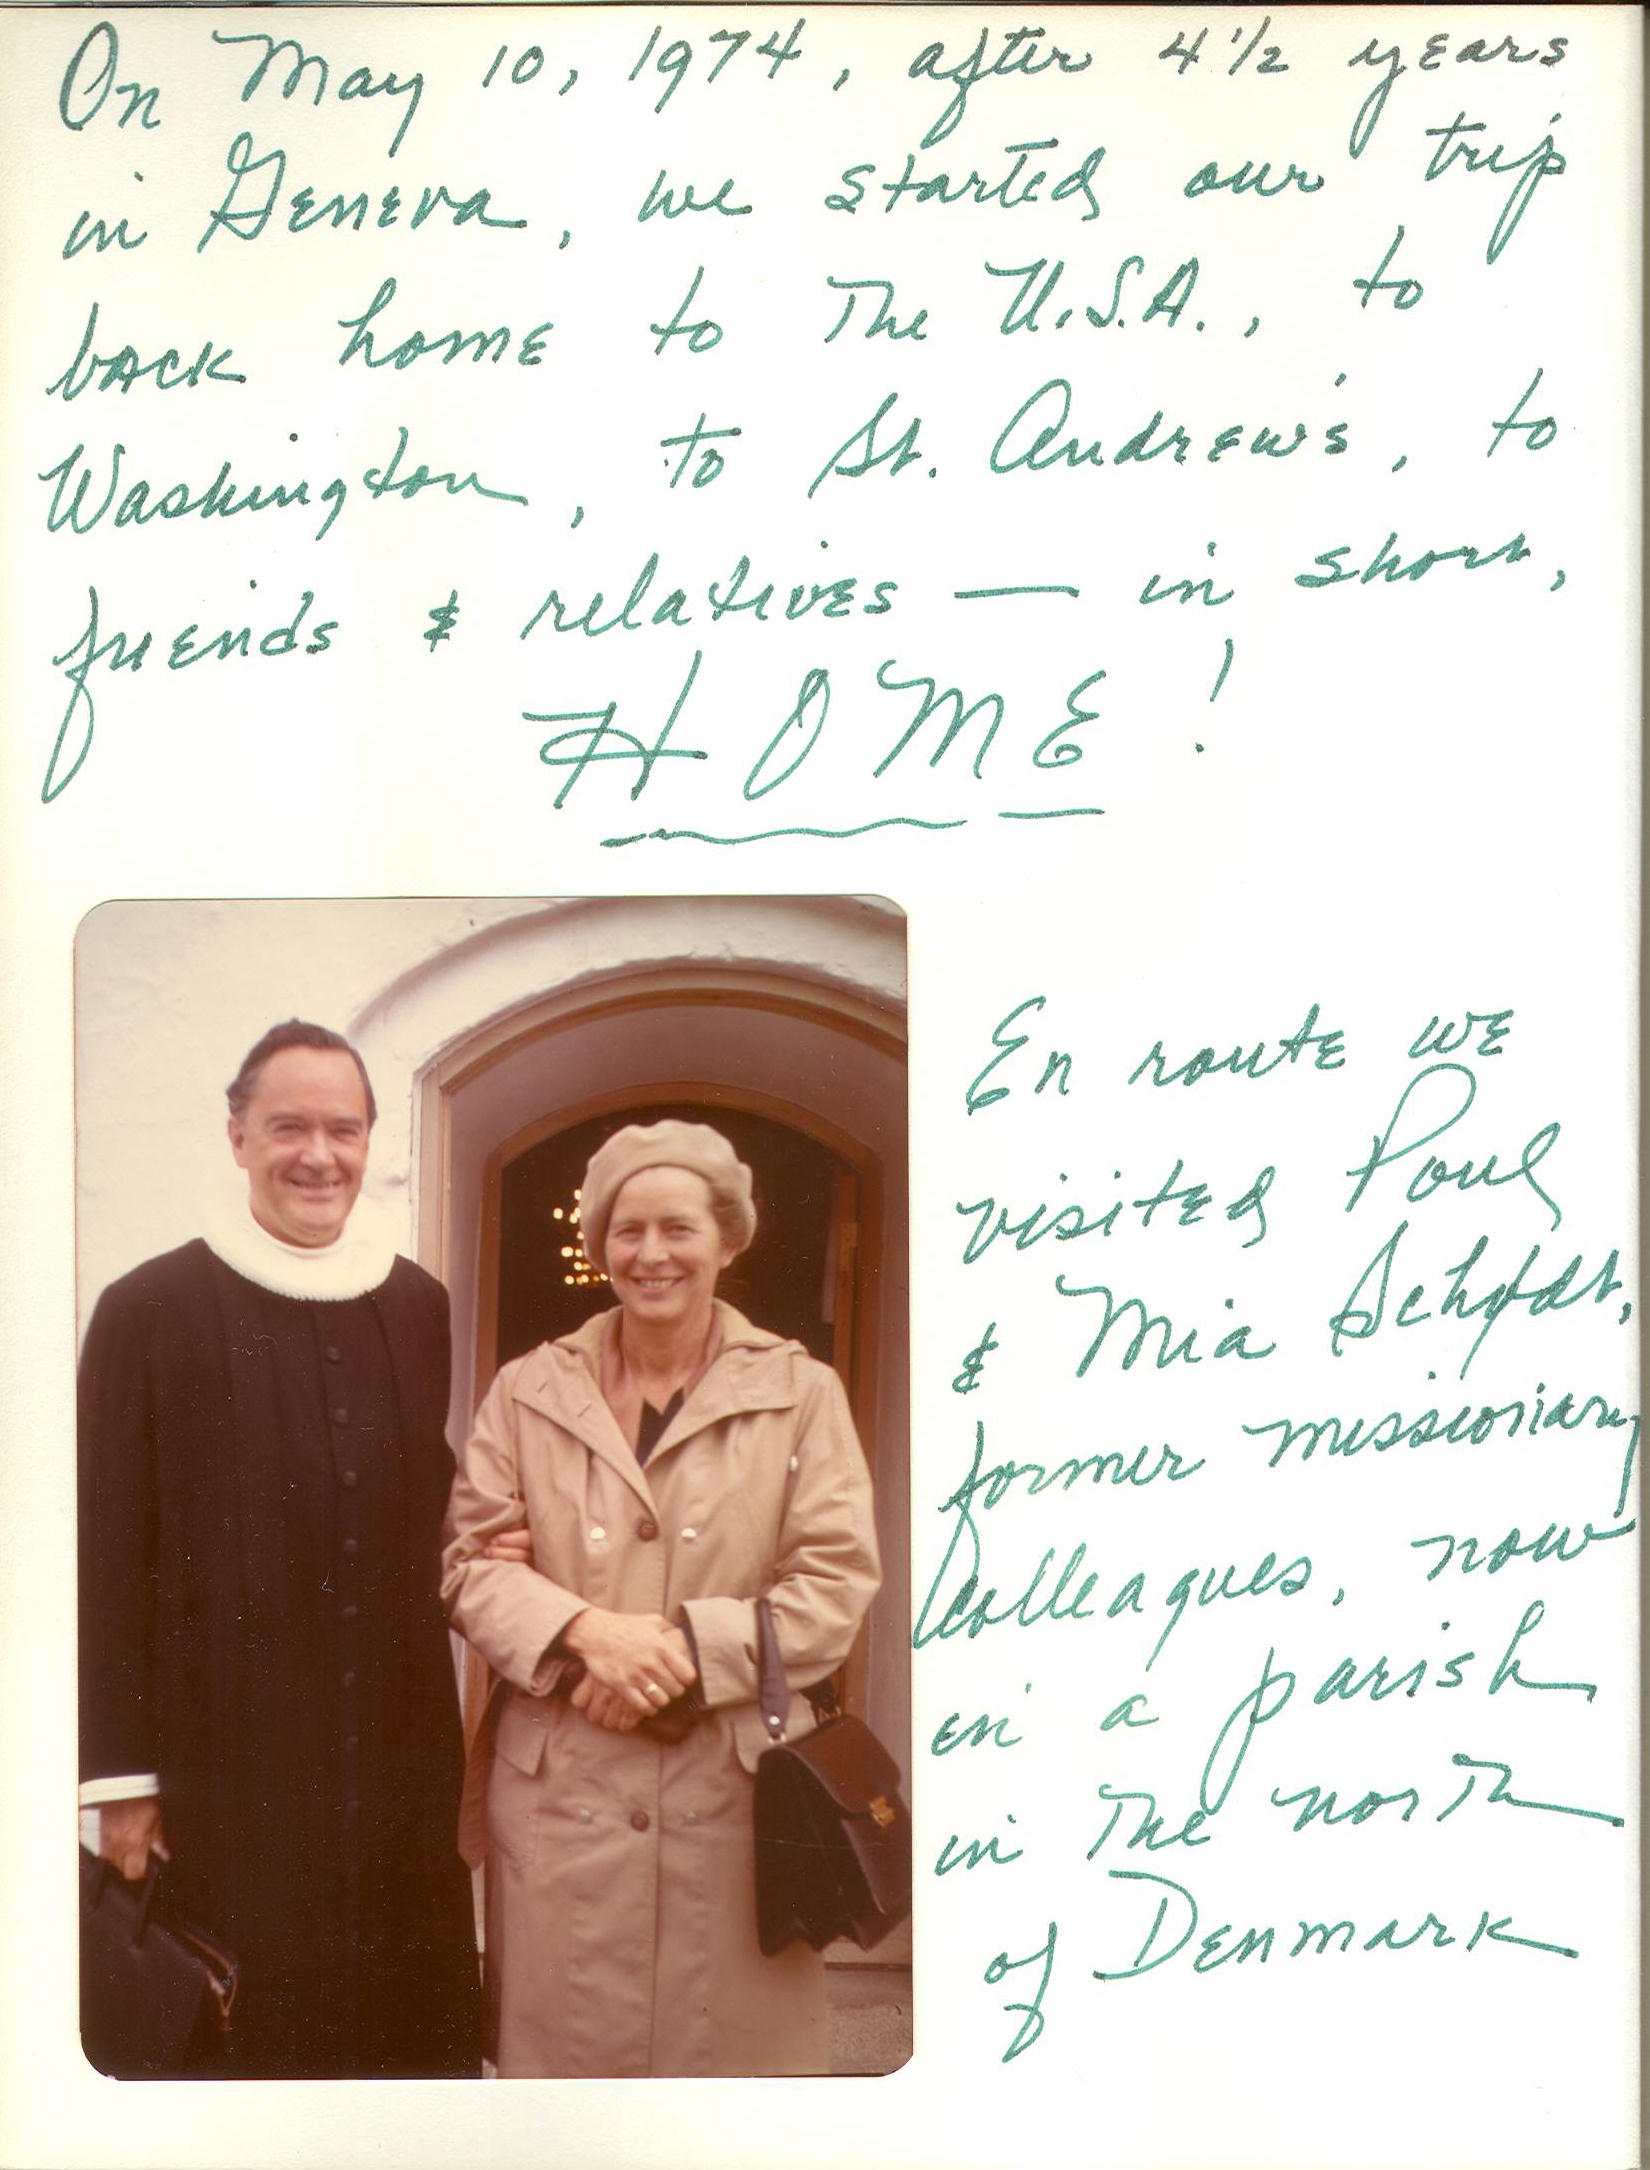 On May 10, 1974, after 4 1/2 years
in Geneva, we started our trip
back home to the U.S.A., to
Washington, to St. Andrew's, to
friends & relatives — in short,
HOME!
En route we
visited Poul
& Mia Schødt,
former missionary
colleagues, now
in a parish
in the north
of Denmark